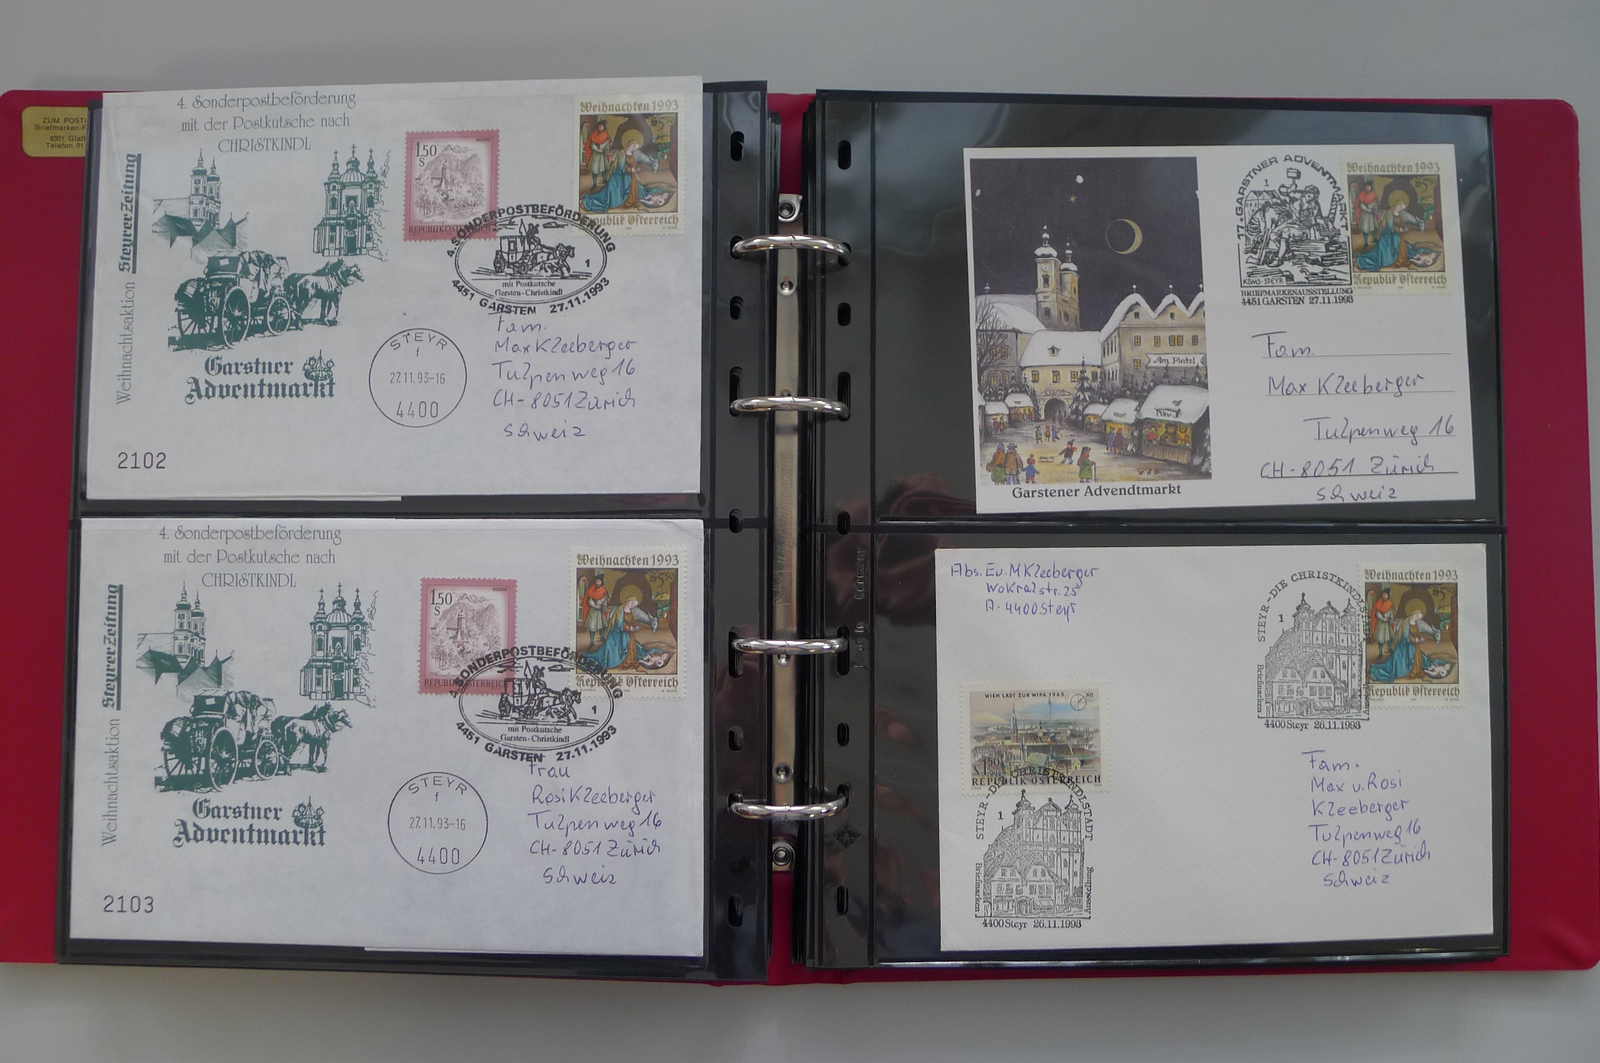 ZUM POST
Briefmarken-F
8301 Glatt
Telefon 01
4. Sonderpostbeförderung
mit der Postkutsche nach
CHRISTKINDL
Weihnachtsaktion Steyrer Zeitung
Garstner
Adventmarkt
2102
1.50
S
REPUBLIK ÖSTERREICH
Weihnachten 1993
S5.50
Republik Österreich
4. SONDERPOSTBEFÖRDERUNG
1
mit Postkutsche
Garsten-Christkindl
4451 GARSTEN 27.11.1993
STEYR
1
27.11.93-16
4400
Fam.
Max Kleeberger
Tulpenweg 16
CH-8051 Zürich
Schweiz
4. Sonderpostbeförderung
mit der Postkutsche nach
CHRISTKINDL
Weihnachtsaktion Steyrer Zeitung
Garstner
Adventmarkt
2103
1.50
S
REPUBLIK ÖSTERREICH
Weihnachten 1993
S5.50
Republik Österreich
4. SONDERPOSTBEFÖRDERUNG
1
mit Postkutsche
Garsten-Christkindl
4451 GARSTEN 27.11.1993
STEYR
1
27.11.93-16
4400
Frau
Rosi Kleeberger
Tulpenweg 16
CH-8051 Zürich
Schweiz
Am Platzl
Garstener Advendtmarkt
17. GARSTNER ADVENTMARKT
1
KSWS-STEYR
BRIEFMARKENAUSSTELLUNG
4451 GARSTEN 27.11.1993
Weihnachten 1993
Republik Österreich
Fam.
Max Kleeberger
Tulpenweg 16
CH-8051 Zürich
Schweiz
Abs. Ev. M Kleeberger
Wokralstr. 25
A-4400 Steyr
WIEN LÄDT ZUR WIPA 1965
1.50
REPUBLIK ÖSTERREICH
STEYR-DIE CHRISTKINDLSTADT
1
Briefmarken Ausstellung
4400 Steyr 26.11.1993
STEYR-DIE CHRISTKINDLSTADT
1
Briefmarken Ausstellung
4400 Steyr 26.11.1993
Weihnachten 1993
S5.50
Republik Österreich
Fam.
Max u. Rosi
Kleeberger
Tulpenweg 16
CH-8051 Zürich
Schweiz